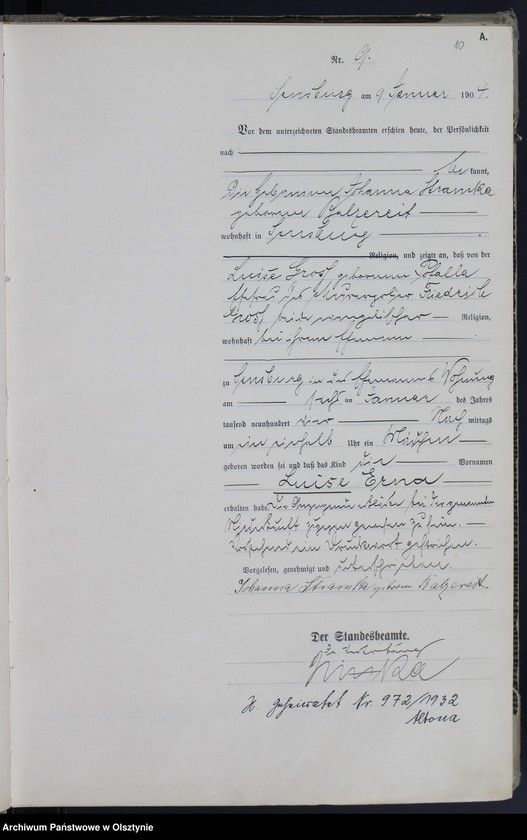 10
A.
Nr. 9.
Sensburg am 9 Januar 1904.
Vor dem unterzeichneten Standesbeamten erschien heute, der Persönlichkeit
nach
bekannt,
Die Hebamme Johanna Stramka
geborene Balzereit
wohnhaft in Sensburg
Religion, und zeigte an, daß von der
Luise Groß geborenen Pofalla
Ehefrau des Friedrich
Groß beide evangelischer Religion,
wohnhaft bei ihrem Ehemann
zu Sensburg in des Ehemanns Wohnung
am acht ten Januar des Jahres
tausend neunhundert vier Nachmittags
um ein einhalb Uhr ein Mädchen
geboren worden sei und daß das Kind die Vornamen
Luise Erna
erhalten habe. Die Anzeigende erklärte, bei der genannten
Niederkunft zugegen gewesen zu sein.
Vorstehend ein Druckwort gestrichen.
Vorgelesen, genehmigt und unterschrieben.
Johanna Stramka geborene Balzereit
Der Standesbeamte.
In Vertretung
H. geheiratet Nr. 972/1932
Altona
Archiwum Państwowe w Olsztynie